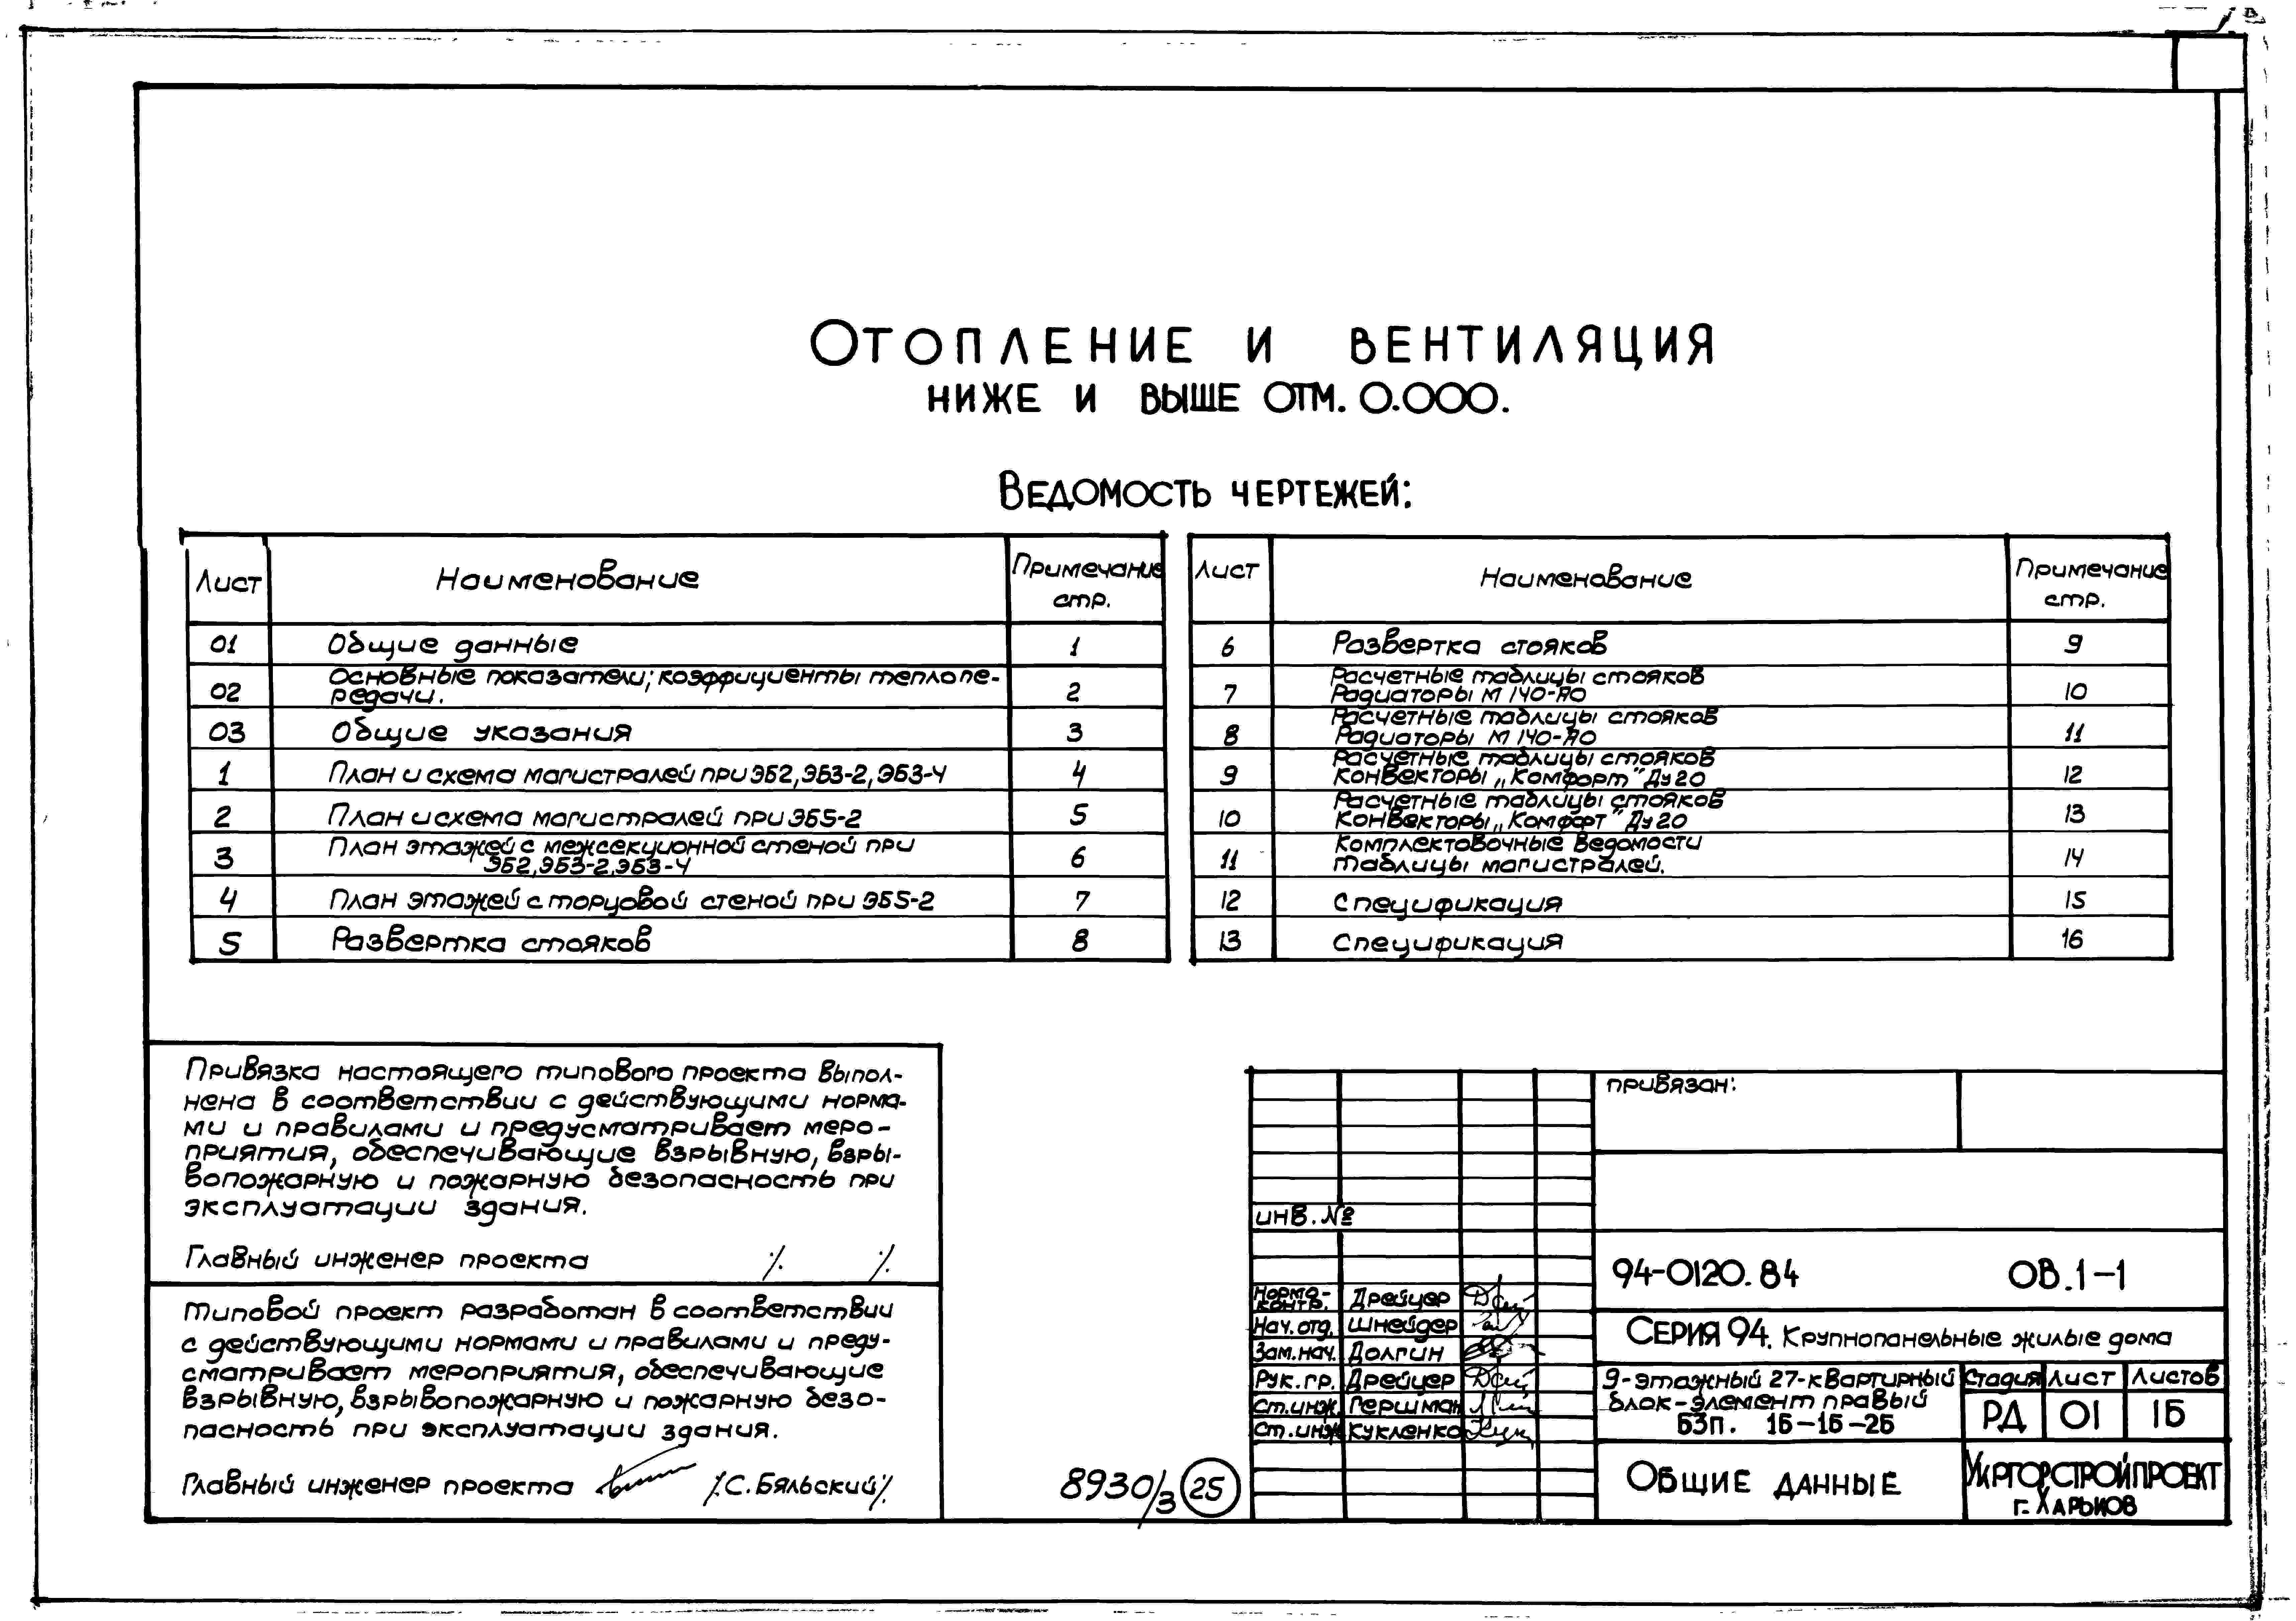 Отопление и вентиляция
ниже и выше отм. 0.000.
Ведомость чертежей:
Лист Наименование Примечание стр.
01 Общие данные 1
02 Основные показатели; коэффициенты теплопе-
редачи. 2
03 Общие указания 3
1 План и схема магистралей при ЭБ2, ЭБ3-2, ЭБ3-4 4
2 План и схема магистралей при ЭБ5-2 5
3 План этажей с межсекционной стеной при
ЭБ2, ЭБ3-2, ЭБ3-4 6
4 План этажей с торцовой стеной при ЭБ5-2 7
5 Развертка стояков 8
Лист Наименование Примечание стр.
6 Развертка стояков 9
7 Расчетные таблицы стояков
Радиаторы М 140-АО 10
8 Расчетные таблицы стояков
Радиаторы М 140-АО 11
9 Расчетные таблицы стояков
Конвекторы „Комфорт" Ду20 12
10 Расчетные таблицы стояков
Конвекторы „Комфорт" Ду20 13
11 Комплектовочные ведомости
таблицы магистралей. 14
12 Спецификация 15
13 Спецификация 16
Привязка настоящего типового проекта выпол-
нена в соответствии с действующими норма-
ми и правилами и предусматривает меро-
приятия, обеспечивающие взрывную, взры-
вопожарную и пожарную безопасность при
эксплуатации здания.
Главный инженер проекта /. /.
Типовой проект разработан в соответствии
с действующими нормами и правилами и преду-
сматривает мероприятия, обеспечивающие
взрывную, взрывопожарную и пожарную безо-
пасность при эксплуатации здания.
Главный инженер проекта /С. Бяльский/
8930/3 25
привязан:
инв. №
94-0120.84 ОВ.1-1
Нормо-
контр. Дрейцер
Нач. отд. Шнейдер
Зам. нач. Долгин
Рук. гр. Дрейцер
Ст. инж. Гершман
Ст. инж Кукленко
Серия 94. Крупнопанельные жилые дома
9-этажный 27-квартирный
блок-элемент правый
БЗп. 1Б-1Б-2Б
Стадия Лист Листов
РД 01 16
Общие данные
Укргорстройпроект
г. Харьков